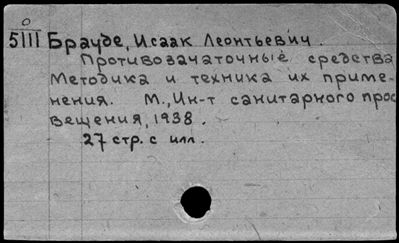 5III Брауде, Исаак Леонтьевич.
Противозачаточные средства
Методика и техника их приме-
нения. М., Ин-т санитарного прос
вещения, 1938.
27 стр. с илл.